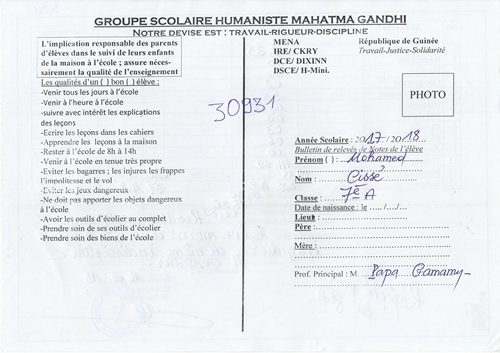 GROUPE SCOLAIRE HUMANISTE MAHATMA GANDHI
NOTRE DEVISE EST : TRAVAIL-RIGUEUR-DISCIPLINE
L'implication responsable des parents
d'élèves dans le suivi de leurs enfants
de la maison à l'école ; assure néces-
sairement la qualité de l'enseignement
Les qualités d'un ( ) bon ( ) élève :
-Venir tous les jours à l'école
-Venir à l'heure à l'école
-suivre avec intérêt les explications
des leçons
-Ecrire les leçons dans les cahiers
-Apprendre les leçons à la maison
-Rester à l'école de 8h à 14h
-Venir à l'école en tenue très propre
-Eviter les bagarres ; les injures les frappes
l'impolitesse et le vol
-Eviter les jeux dangereux
-Ne doit pas apporter les objets dangereux
à l'école
-Avoir les outils d'écolier au complet
-Prendre soin de ses outils d'écolier
-Prendre soin des biens de l'école
30931
MENA
IRE/ CKRY
DCE/ DIXINN
DSCE/ H-Mini.
République de Guinée
Travail-Justice-Solidarité
PHOTO
Année Scolaire : 2017/2018
Bulletin de relevés de Notes de l'élève
Prénom ( ) : Mohamed
Nom : Cissé
Classe : 7è A
Date de naissance : le ..../..../....
Lieu :
Père :
Mère :
Prof. Principal : M. Papa Camamy